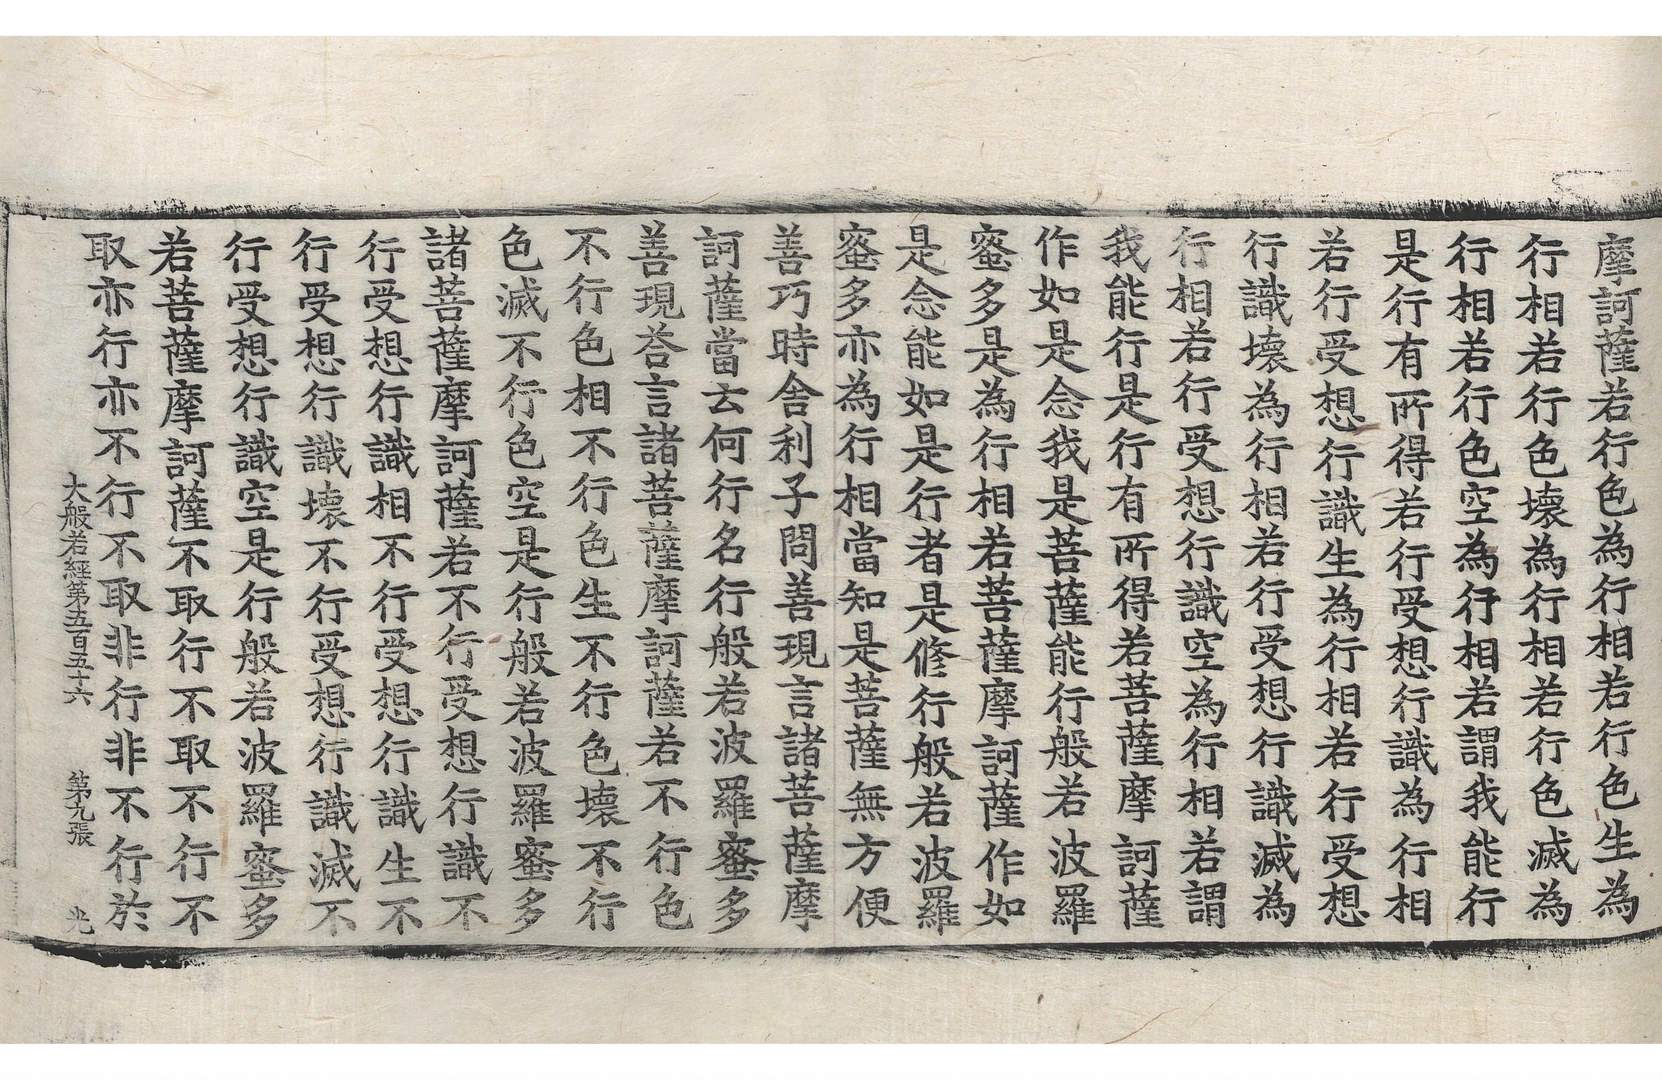 摩訶薩若行色為行相若行色生為
行相若行色壞為行相若行色滅為
行相若行色空為行相若謂我能行
是行有所得若行受想行識為行相
若行受想行識生為行相若行受想
行識壞為行相若行受想行識滅為
行相若行受想行識空為行相若謂
我能行是行有所得若菩薩摩訶薩
作如是念我是菩薩能行般若波羅
蜜多是為行相若菩薩摩訶薩作如
是念能如是行者是修行般若波羅
蜜多亦為行相當知是菩薩無方便
善巧時舍利子問善現言諸菩薩摩
訶薩當云何行名行般若波羅蜜多
善現荅言諸菩薩摩訶薩若不行色
不行色相不行色生不行色壞不行
色滅不行色空是行般若波羅蜜多
諸菩薩摩訶薩若不行受想行識不
行受想行識相不行受想行識生不
行受想行識壞不行受想行識滅不
行受想行識空是行般若波羅蜜多
若菩薩摩訶薩不取行不取不行不
取亦行亦不行不取非行非不行於
大般若經第五百五十六 第九張 光